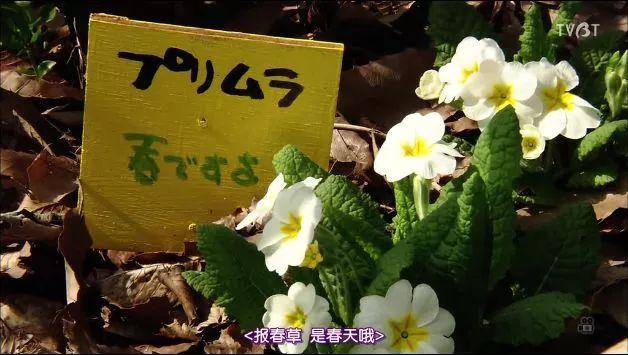 TVBT
プリムラ
春ですよ
<报春草 是春天哦>